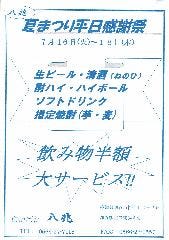 八兆
夏まつり平日感謝祭
7月16日(火)~18日(木)
生ビール・清酒(ねのひ)
酎ハイ・ハイボール
ソフトドリンク
指定焼酎(芋・麦)
飲み物半額
大サービス!!
八兆
TEL
FAX